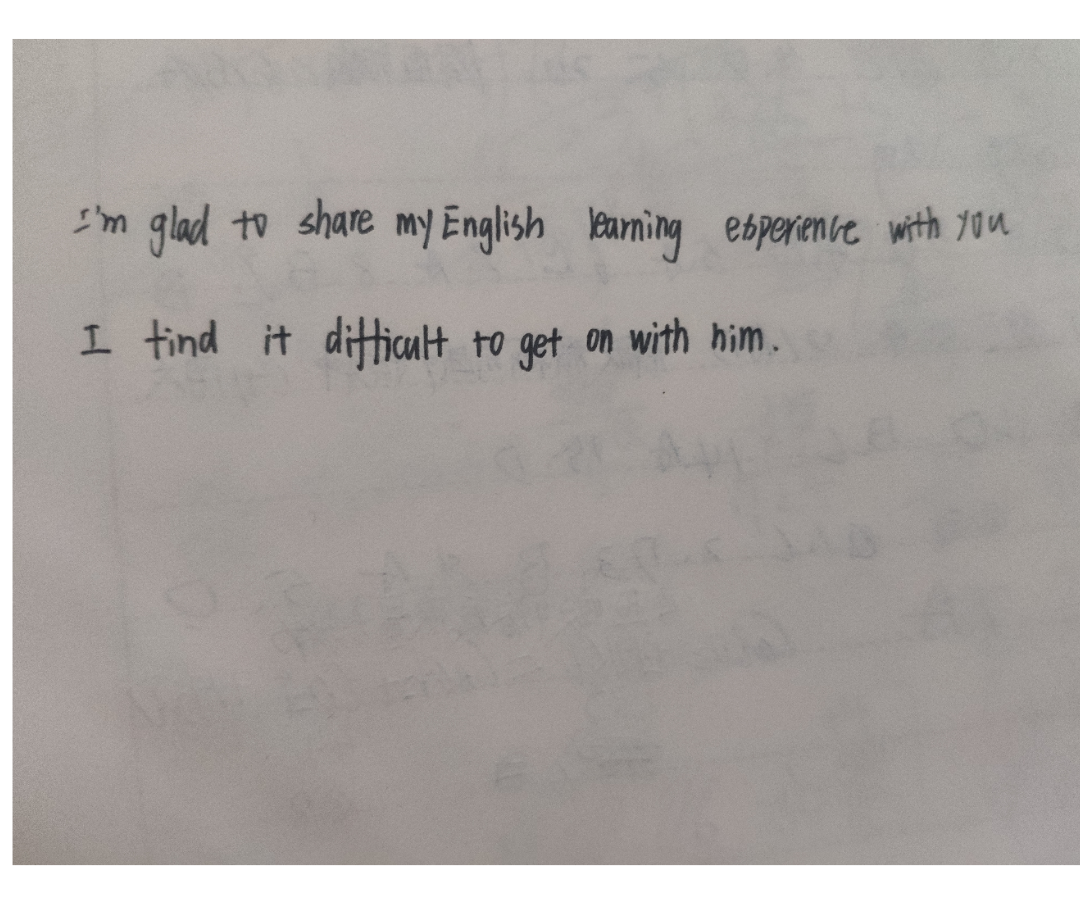 I'm glad to share my English learning experience with you
I find it difficult to get on with him.